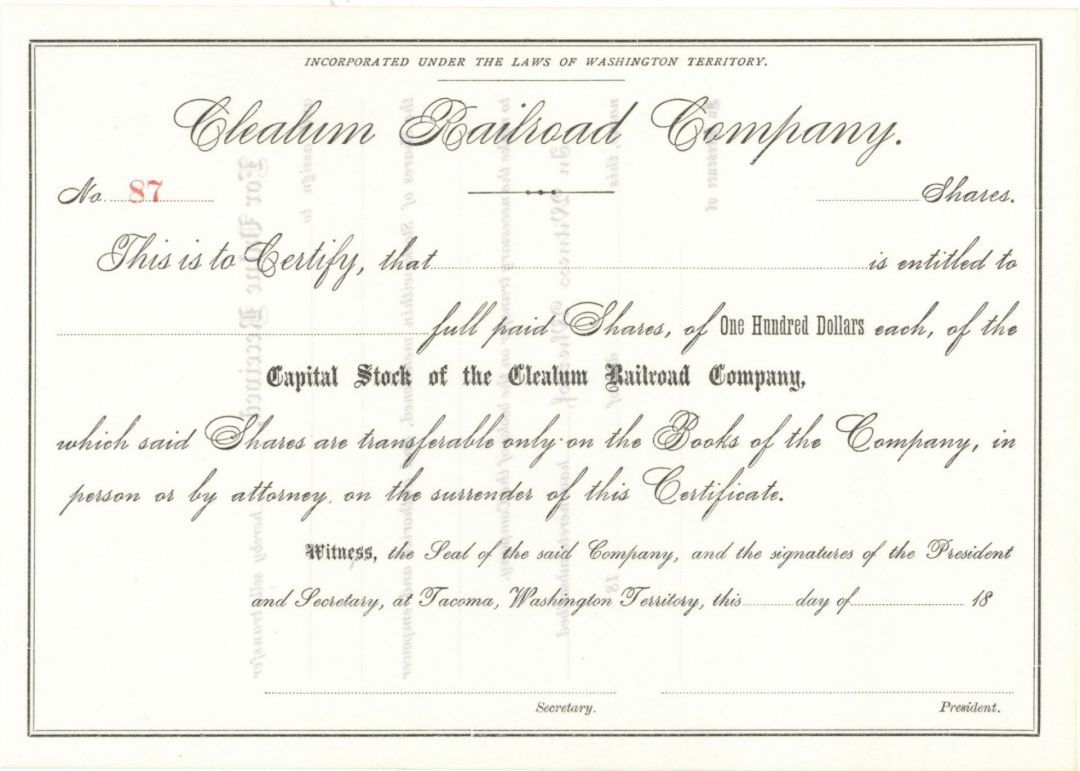 INCORPORATED UNDER THE LAWS OF WASHINGTON TERRITORY.
Clealum Railroad Company.
No. 87 Shares.
This is to Certify, that is entitled to
full paid Shares, of One Hundred Dollars each, of the
Capital Stock of the Clealum Railroad Company,
which said Shares are transferable only on the Books of the Company, in
person or by attorney, on the surrender of this Certificate.
Witness, the Seal of the said Company, and the signatures of the President
and Secretary, at Tacoma, Washington Territory, this day of 18
Secretary. President.